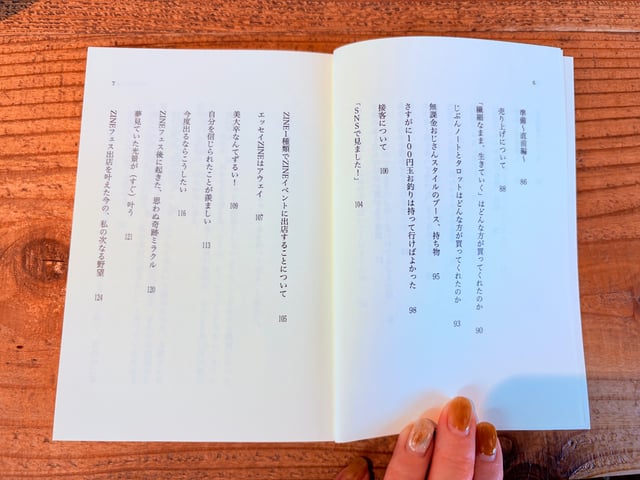 6
準備〜直前編〜 86
売り上げについて 88
「繊細なまま、生きていく」はどんな方が買ってくれたのか 90
じぶんノートとタロットはどんな方が買ってくれたのか 93
無課金おじさんスタイルのブース、持ち物 95
さすがに100円玉お釣りは持って行けばよかった 98
接客について 100
「SNSで見ました！」 104
ZINE1種類でZINEイベントに出店することについて 105
エッセイZINEはアウェイ 107
美大卒なんてずるい！ 109
自分を信じられたことが羨ましい 113
今度出るならこうしたい 116
ZINEフェス後に起きた、思わぬ奇跡ミラクル 120
夢見ていた光景が（すぐ）叶う 121
ZINEフェス出店を叶えた今の、私の次なる野望 124
7